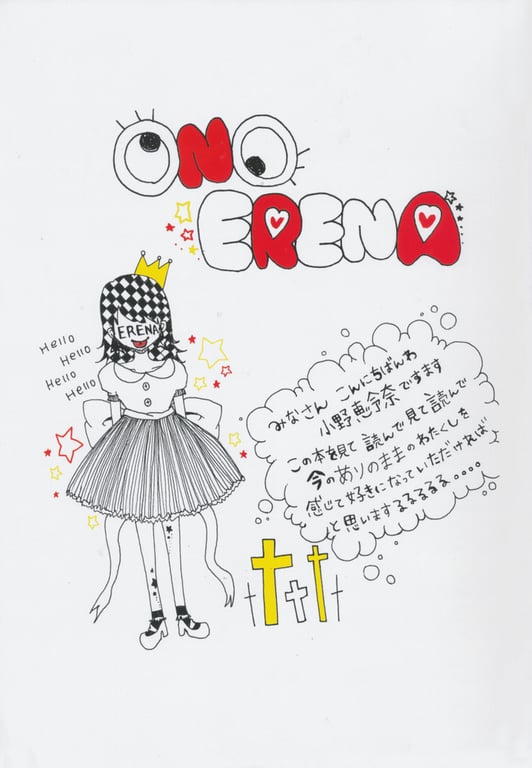 ONO
ERENA
ERENA
Hello
Hello
Hello
Hello
みなさん こんにちばんわ
小野恵令奈ですます
この本を見て 読んで見て読んで
今のありのままのわたくしを
感じて好きになっていただければ
と思いまするるるるる.....